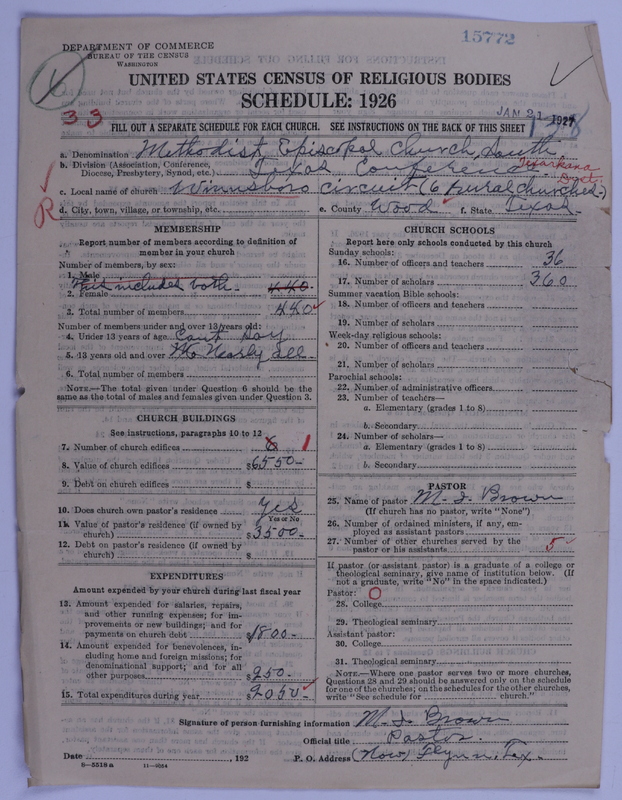 15772
DEPARTMENT OF COMMERCE
BUREAU OF THE CENSUS
WASHINGTON
UNITED STATES CENSUS OF RELIGIOUS BODIES
SCHEDULE: 1926
33
JAN 21 1927
FILL OUT A SEPARATE SCHEDULE FOR EACH CHURCH. SEE INSTRUCTIONS ON THE BACK OF THIS SHEET
a. Denomination Methodist Episcopal Church, South
b. Division (Association, Conference, Diocese, Presbytery, Synod, etc.) Texas Conference Texarkana Dist.
c. Local name of church Winnsboro circuit (6 Rural churches.)
R
d. City, town, village, or township, etc. e. County Wood f. State Texas
MEMBERSHIP
Report number of members according to definition of member in your church
Number of members, by sex:
1. Male
This includes both. 440
2. Female
3. Total number of members 440
Number of members under and over 13 years old:
4. Under 13 years of age Cant Say
5. 13 years old and over Nearly all.
6. Total number of members
NOTE.—The total given under Question 6 should be the same as the total of males and females given under Question 3.
CHURCH BUILDINGS
See instructions, paragraphs 10 to 12
7. Number of church edifices 6 1
8. Value of church edifices $6550-
9. Debt on church edifices $
10. Does church own pastor's residence Yes
Yes or No
11. Value of pastor's residence (if owned by church) $3500-
12. Debt on pastor's residence (if owned by church) $
EXPENDITURES
Amount expended by your church during last fiscal year
13. Amount expended for salaries, repairs, and other running expenses; for improvements or new buildings; and for payments on church debt $1800-
14. Amount expended for benevolences, including home and foreign missions; for denominational support; and for all other purposes $250-
15. Total expenditures during year $2050-
CHURCH SCHOOLS
Report here only schools conducted by this church
Sunday schools:
16. Number of officers and teachers 36
17. Number of scholars 360
Summer vacation Bible schools:
18. Number of officers and teachers
19. Number of scholars
Week-day religious schools:
20. Number of officers and teachers
21. Number of scholars
Parochial schools:
22. Number of administrative officers
23. Number of teachers—
a. Elementary (grades 1 to 8)
b. Secondary
24. Number of scholars—
a. Elementary (grades 1 to 8)
b. Secondary
PASTOR
25. Name of pastor M. I. Brown
(If church has no pastor, write "None")
26. Number of ordained ministers, if any, employed as assistant pastors
27. Number of other churches served by the pastor or his assistants 5
If pastor (or assistant pastor) is a graduate of a college or theological seminary, give name of institution below. (If not a graduate, write "No" in the space indicated.)
Pastor: O
28. College
29. Theological seminary
Assistant pastor:
30. College
31. Theological seminary
NOTE.—Where one pastor serves two or more churches, Questions 28 and 29 should be answered only on the schedule for one of the churches; on the schedules for the other churches, write "See schedule for church."
Signature of person furnishing information M. I. Brown
Official title Pastor.
Date , 192 P. O. Address (Now) Flynn, Tex.
8-5518a 11-9054